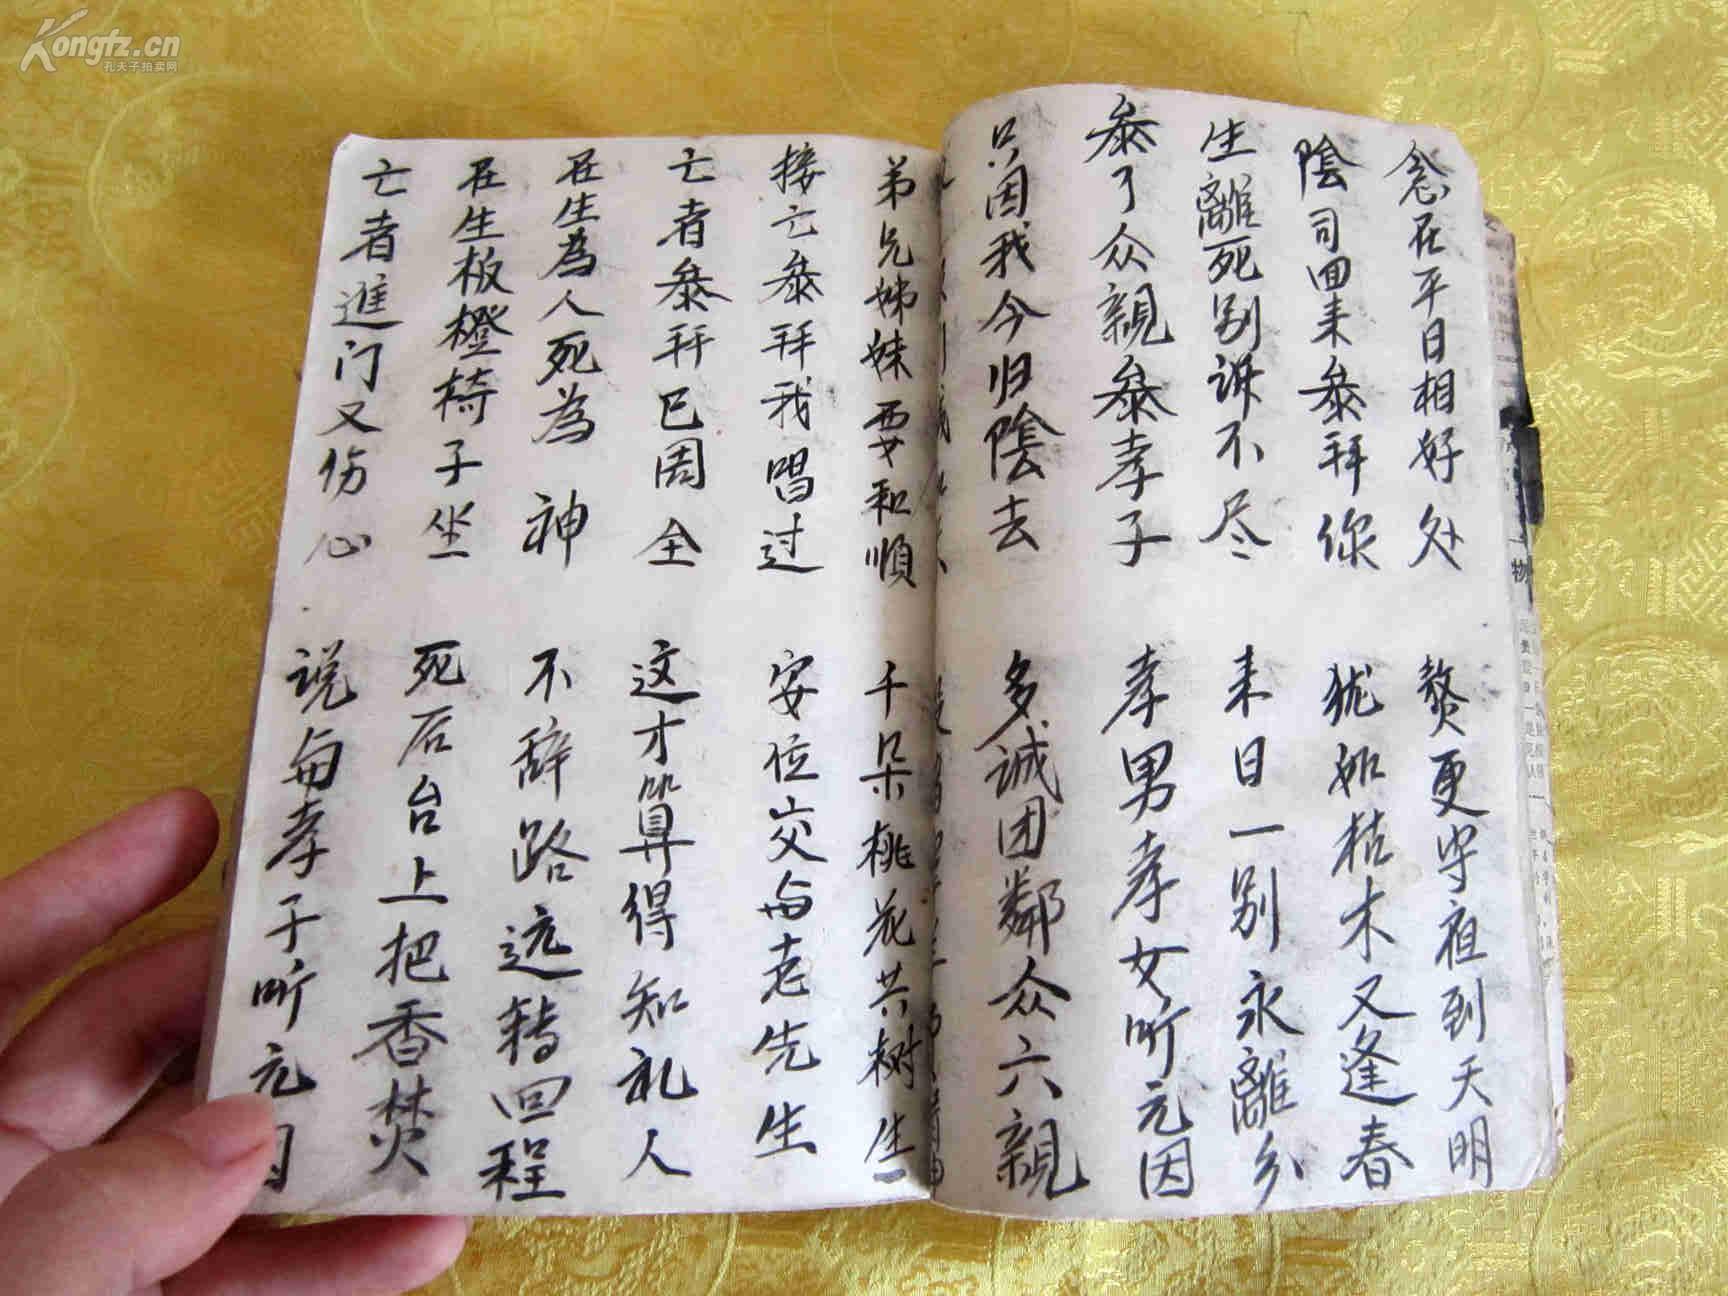 Kongfz.cn
孔夫子拍卖网
念在平日相好处
熬更守祖到天明
陰司回来参拜你
犹如枯木又逢春
生離死别诉不尽
来日一别永離乡
参了众親参孝子
孝男孝女听元因
只因我今归陰去
多诚团鄰众六親
弟兄姊妹要和順
千朵桃花共树生
接亡参拜我唱过
安位交与老先生
亡者参拜已周全
这才算得知礼人
在生為人死為神
不辞路远转回程
在生板橙椅子坐
死后台上把香焚
亡者進门又伤心
说与孝子听元因
物